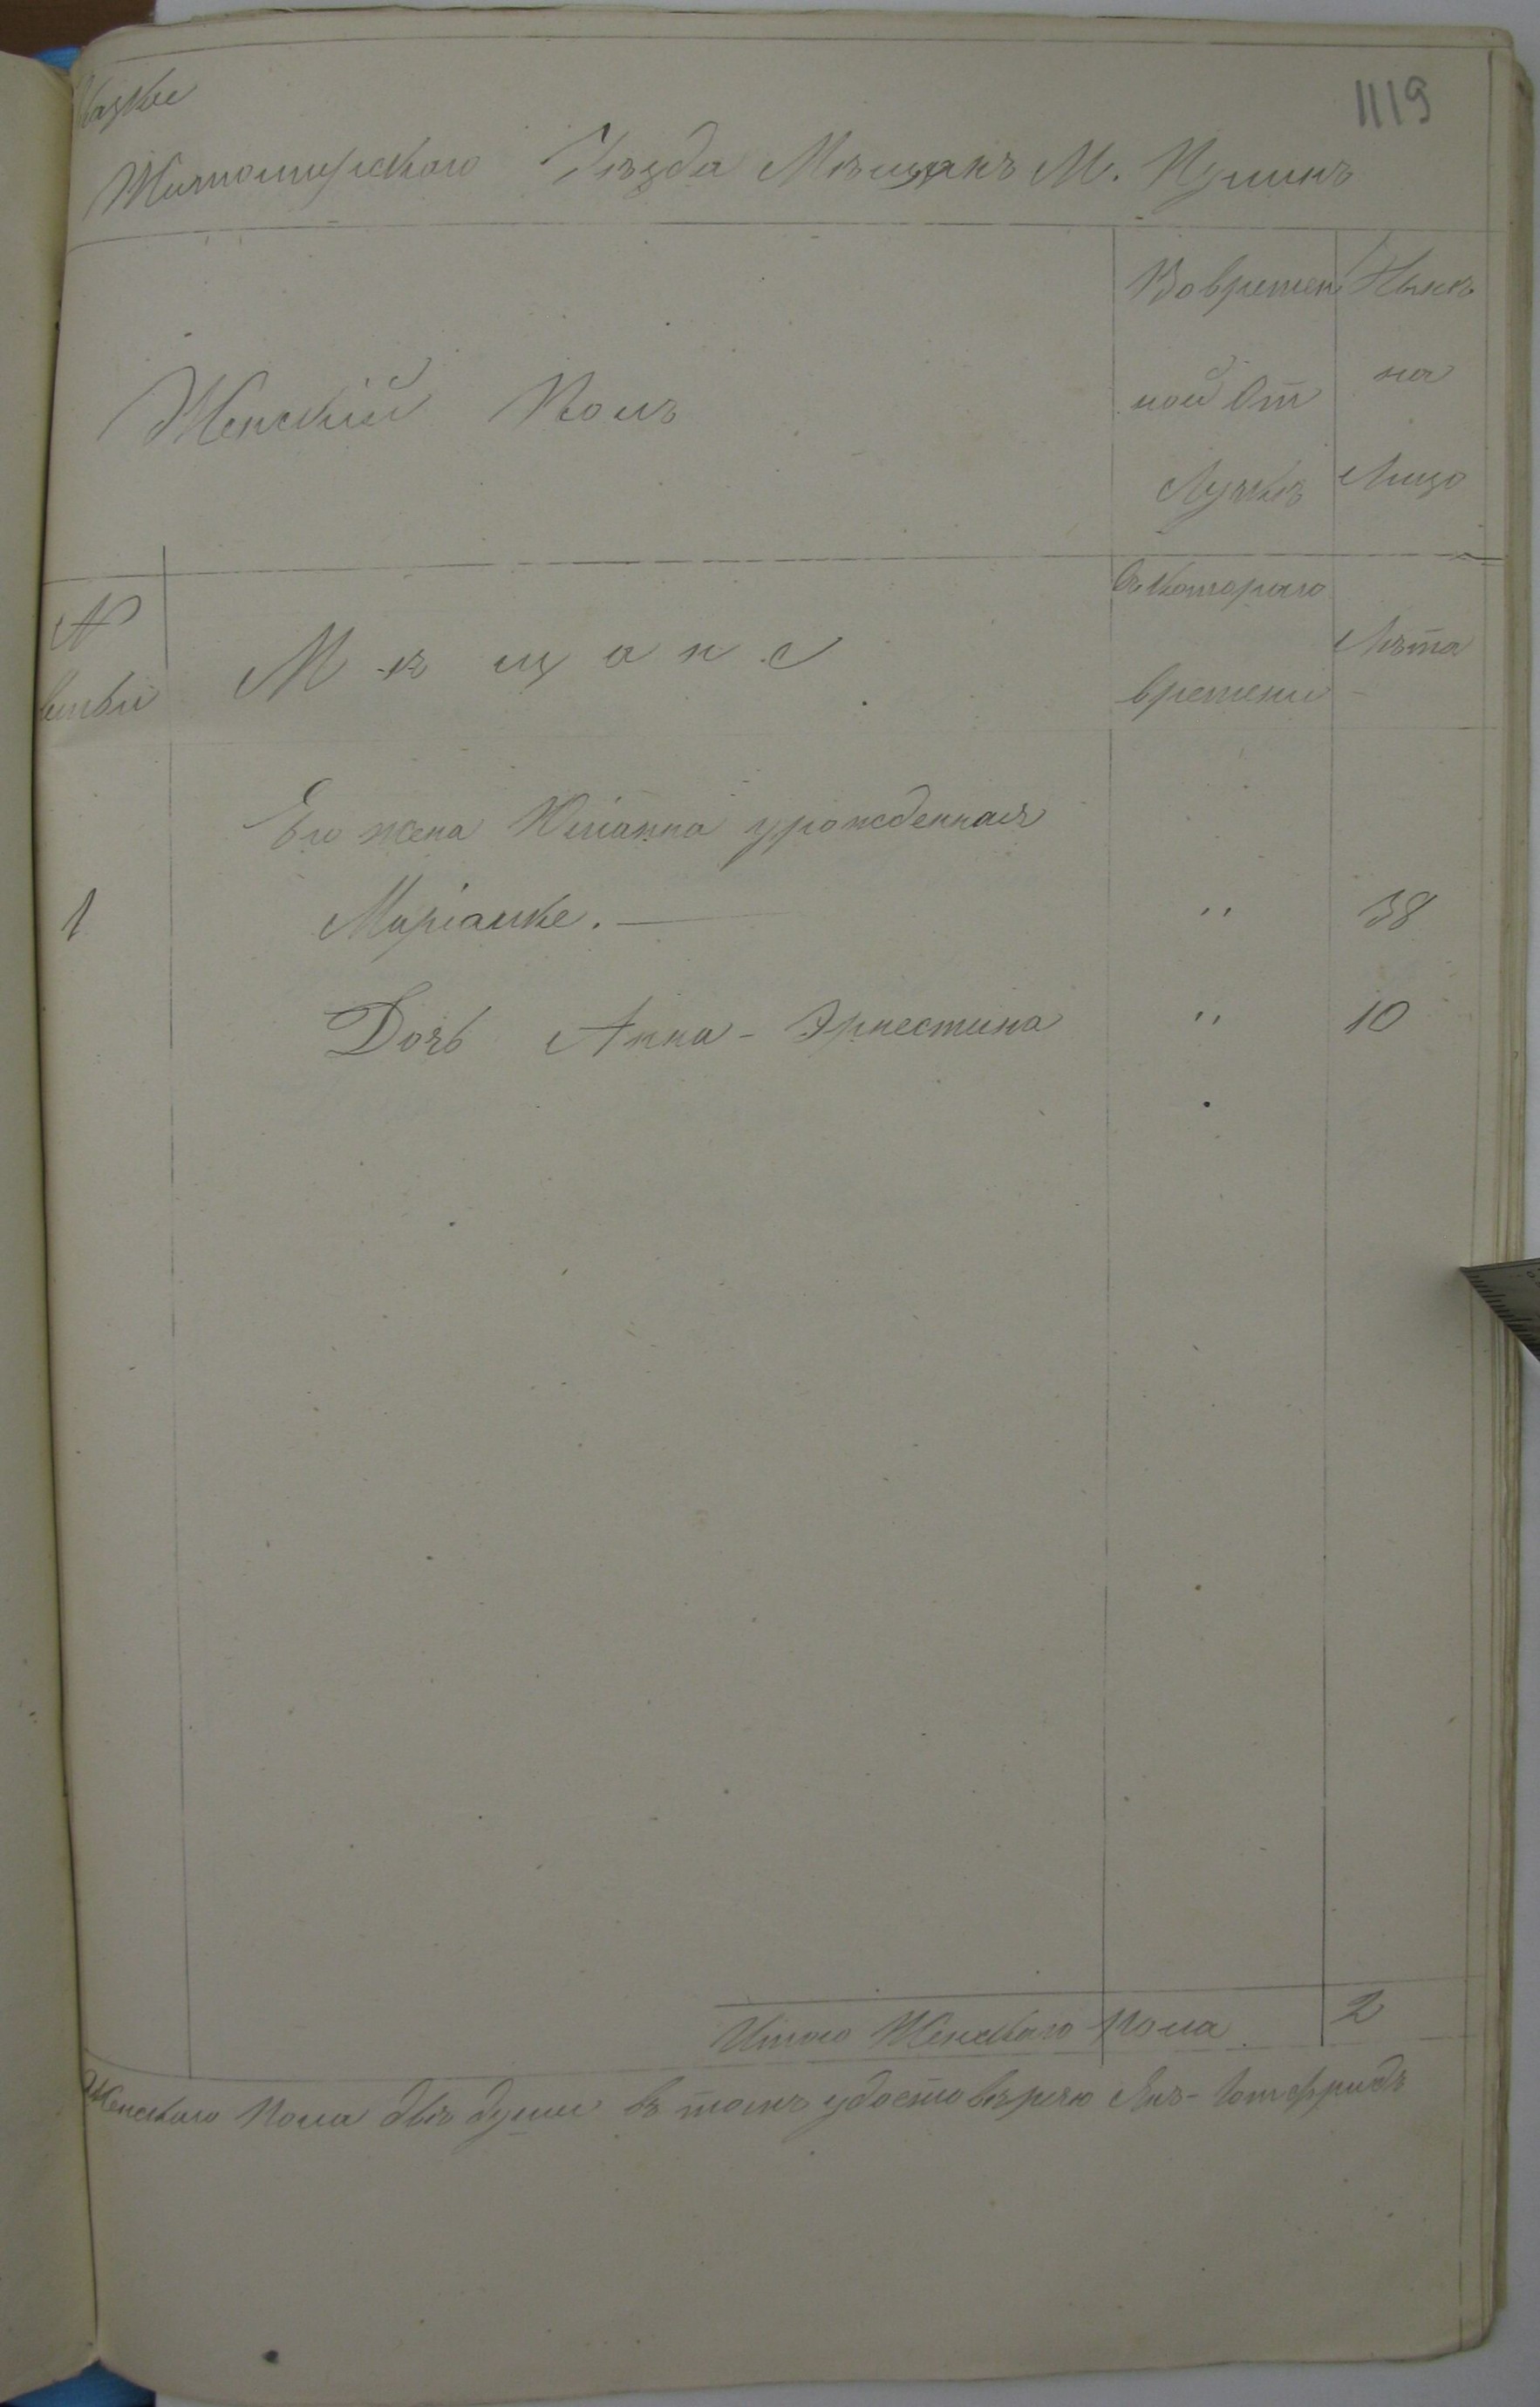 1119
Житомирскаго Уѣзда Мѣщанъ М. Кулинъ
Женскій Полъ
Во времен
ной От
Лучкѣ
Нынѣ
на
Лицо
N
М ѣ щ а н е
Съ котораго
времени
Лѣта
Его жена Юліанна урожденная
1 Маріанке. — " 38
Дочь Анна - Эрнестина " 10
Итого Женскаго Пола 2
Женскаго Пола двѣ души въ томъ удостовѣряю Янъ - Готфридъ